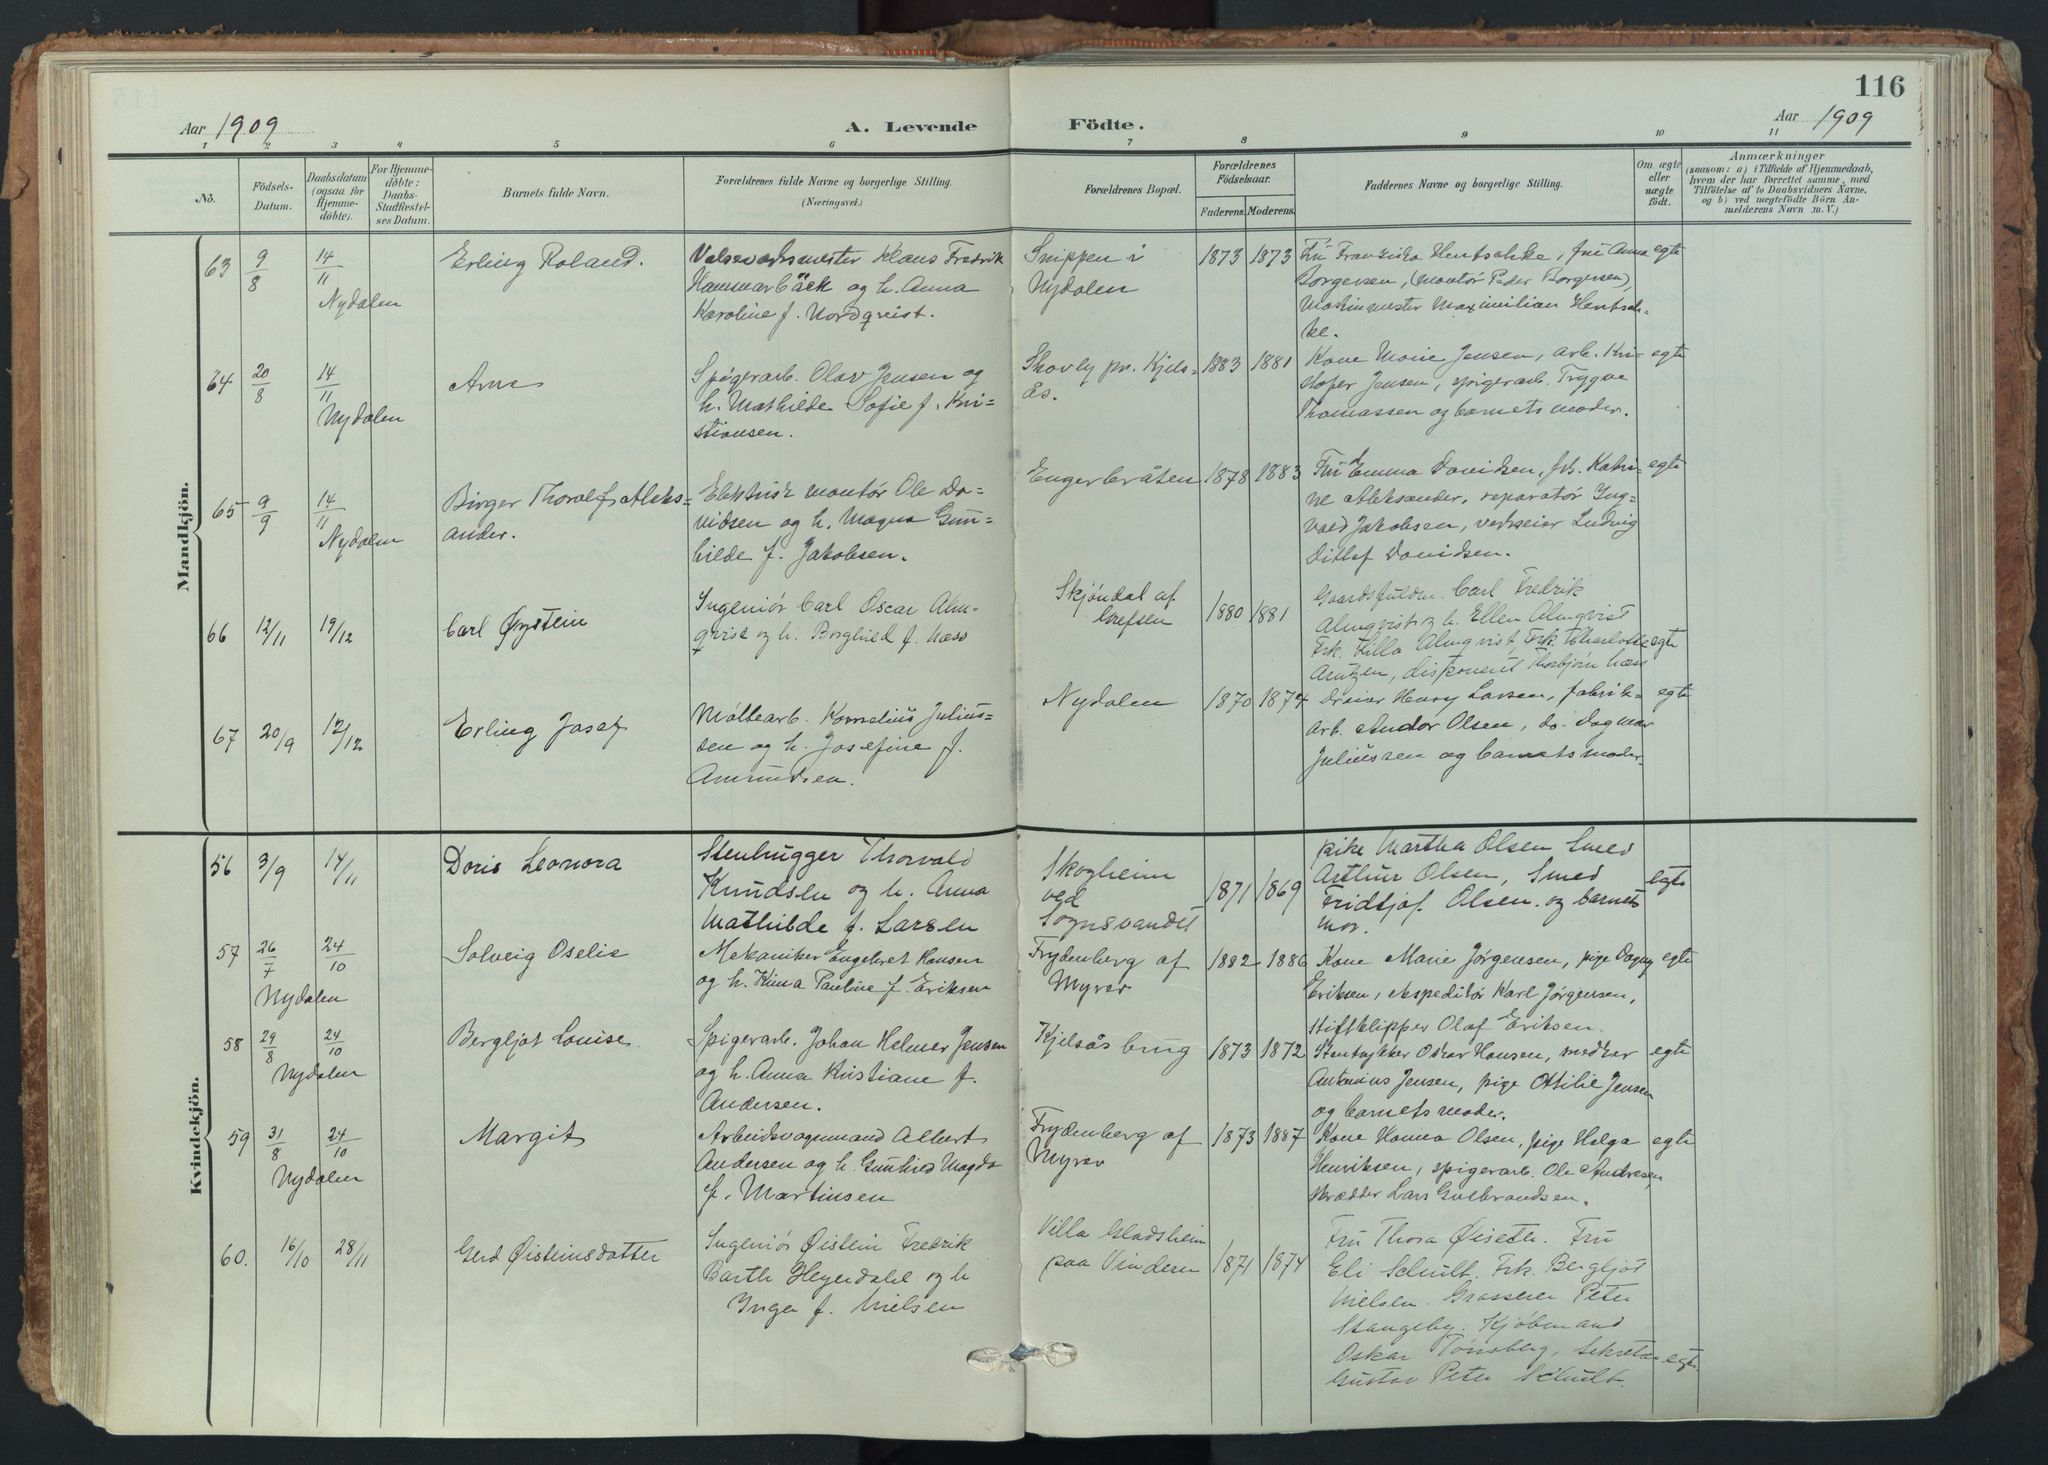 116
Aar 1909 A. Levende Födte. Aar 1909
1 2 3 4 5 6 7 8 9 10 11
No. Födsels-Datum. Daabsdatum (ogsaa for Hjemmedöbte). For Hjemmedöbte: Daabs-Stadfæstelses Datum. Barnets fulde Navn. Forældrenes fulde Navne og borgerlige Stilling. (Næringsvei.) Forældrenes Bopæl. Forældrenes Födselsaar. Faderens. Moderens. Faddernes Navne og borgerlige Stilling. Om ægte eller uægte födt. Anmærkninger (saasom: a) i Tilfælde af Hjemmedaab, hvem der har forrettet samme, med Tilföielse af to Daabsvidners Navne, og b) ved uægtefödte Börn Anmelderens Navn m. V.)
Mandkjön.
63 9/8 14/11 Nydalen Erling Roland.
Valseverksmester Klaus Fredrik
Hammarbäck og h. Anna
Karoline f. Nordqvist.
Snippen i
Nydalen
1873 1873
Fru Franziska Hentschke, fru Anna egte
Borgersen, (montør Peder Borgersen),
Maskinmester Maximilian Hentsch-
ke.
64 20/8 14/11 Nydalen Arne
Spigerarb. Olav Jensen og
h. Mathilde Sofie f. Kri-
stiansen.
Skovly pr. Kjels-
ås.
1883 1881
Kone Marie Jensen, arb. Kri- egte
stofer Jensen, spigerarb. Trygve
Thomassen og barnets moder.
65 9/9 14/11 Nydalen Birger Thoralf Aleks-
ander.
Elektrisk montør Ole Da-
vidsen og h. Magna Gun-
hilde f. Jakobsen.
Engerbråten 1878 1883
Fru Emma Davidsen, frk. Katri- egte
ne Aleksander, reparatør Ing-
vald Jakobsen, verkseier Ludvig
Ditlef Davidsen.
66 12/11 19/12 Carl Øystein
Ingeniör Carl Oscar Alm-
qvist og h. Borghild f. Næss
Skjöndal af
Grefsen
1880 1881
Gaardsfuldm. Carl Fredrik
Almqvist og h. Ellen Almqvist
Frk. Lilla Almqvist, Frk. Charlotte egte
Arntzen, disponent Thorbjörn Næss
67 20/9 12/12 Erling Josef
Møllearb. Kornelius Julius-
sen og h. Josefine f.
Amundsen.
Nydalen 1870 1874
Dreier Henry Larsen, fabrik- egte
arb. Andor Olsen, do. Dagmar
Juliussen og barnets moder.
Kvindekjön.
56 3/9 14/11 Doris Leonora
Stenhugger Thorvald
Knudsen og h. Anna
Mathilde f. Larsen
Skogheim
ved
Sognsvandet
1871 1869
pike Martha Olsen Smed
Arthur Olsen, Smed egte
Fridtjof Olsen. og barnets
mor.
57 26/7 24/10 Nydalen Solveig Oselie
Mekaniker Engebret Hansen
og h. Pauline f. Eriksen
Frydenberg af
Myrer
1882 1886
Kone Marie Jørgensen, pige Dagny egte
Eriksen, ekspeditör Karl Jørgensen,
stiftklipper Olaf Eriksen.
58 29/8 24/10 Nydalen Bergljot Louise.
Spigerarb. Johan Helmer Jensen
og h. Anna Kristiane f.
Andersen.
Kjelsås brug 1873 1872
Stentrykker Oskar Hansen, snedker egte
Antonius Jensen, pige Ottilie Jensen
og barnets moder.
59 31/8 24/10 Nydalen Margit
Arbeidsvognmand Albert
Andersen og h. Gunhild Magda
f. Martinsen
Frydenberg af
Myrer
1873 1887
Kone Hanna Olsen, pige Helga egte
Henriksen, spigerarb. Ole Andresen,
skrædder Lars Gulbrandsen.
60. 16/10 28/11 Gerd Øisteinsdatter
Ingeniör Øistein Fredrik
Barth Heyerdahl og h
Inga f. Nielsen
Villa Gladsheim
paa Vinderen
1871 1874
Fru Thora Øiseth. Fru
Eli Schult. Frk. Bergljot
Nielsen. Grosserer Peter
Stangeby. Kjöbmand
Oskar Tönsberg, Sekretær egte
Gustav Peter Schult.